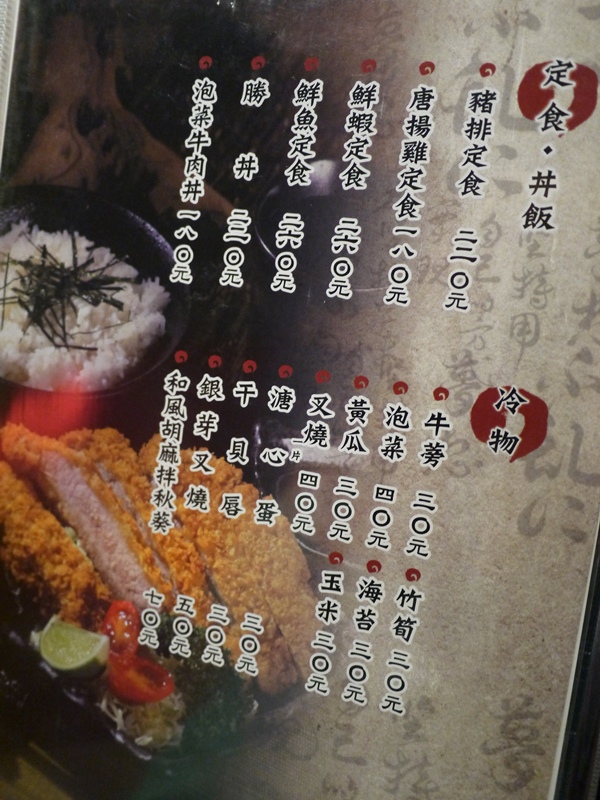 定食・丼飯
豬排定食 二二〇元
唐揚雞定食 一八〇元
鮮蝦定食 二六〇元
鮮魚定食 二六〇元
勝丼 二二〇元
泡菜牛肉丼 一八〇元
冷物
牛蒡 三〇元
泡菜 四〇元
黃瓜 三〇元
叉燒 一片 四〇元
溏心蛋 三〇元
干貝唇 三〇元
銀芽叉燒 五〇元
和風胡麻拌秋葵 七〇元
竹筍 三〇元
海苔 三〇元
玉米 三〇元